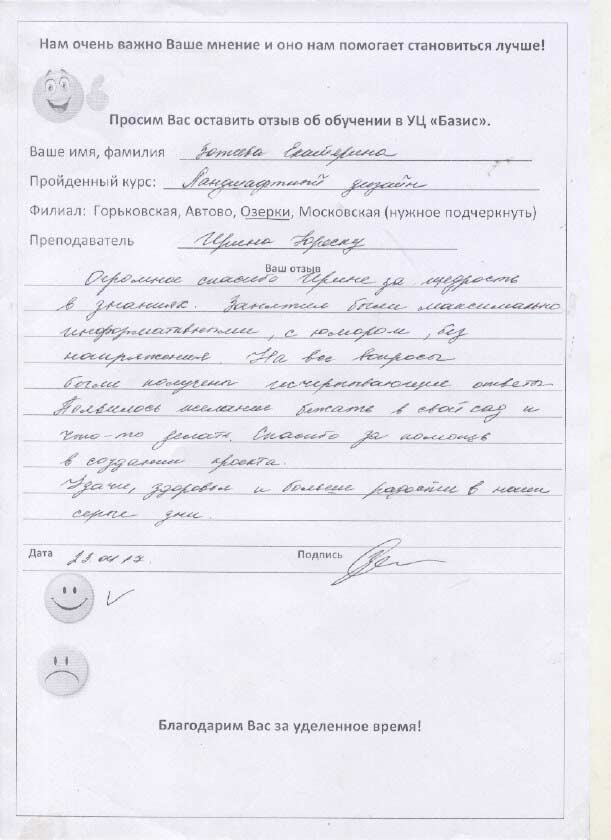 Нам очень важно Ваше мнение и оно нам помогает становиться лучше!
Просим Вас оставить отзыв об обучении в УЦ «Базис».
Ваше имя, фамилия Зотеева Екатерина
Пройденный курс: Ландшафтный дизайн
Филиал: Горьковская, Автово, Озерки, Московская (нужное подчеркнуть)
Преподаватель Ирина
Ваш отзыв
Огромное спасибо Ирине за щедрость
в знаниях. Занятия были максимально
информативными, с юмором, без
напряжения. На все вопросы
были получены исчерпывающие ответы
Появилось желание бежать в свой сад и
что-то делать. Спасибо за помощь
в создании проекта.
Удачи, здоровья и больше радости в наши
серые дни.
Дата 23.04.17. Подпись
Благодарим Вас за уделенное время!